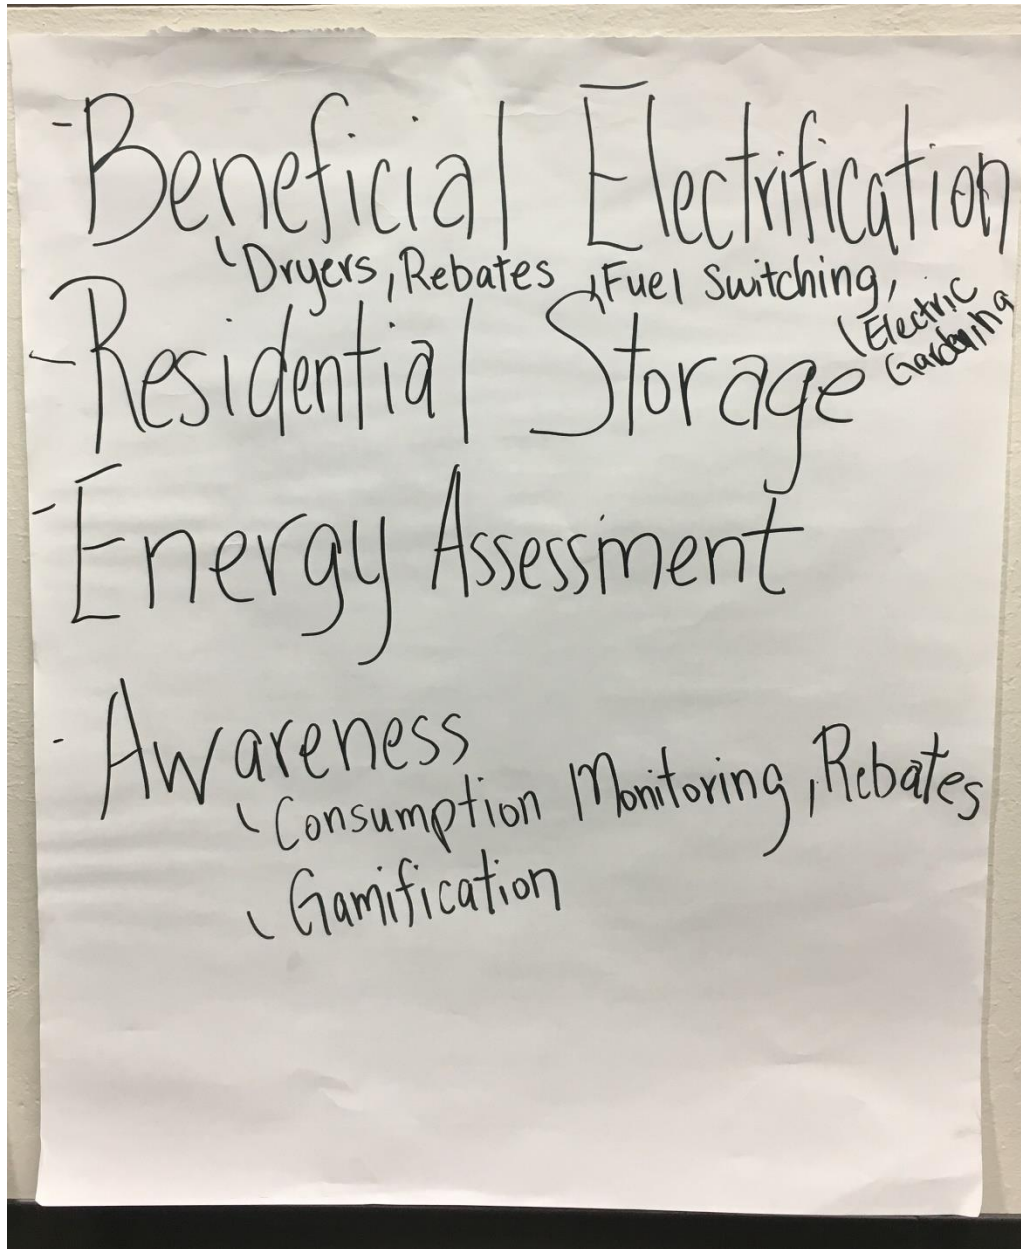 - Beneficial Electrification
Dryers, Rebates, Fuel Switching,
Electric
Gardening
- Residential Storage
- Energy Assessment
- Awareness
Consumption Monitoring, Rebates
Gamification